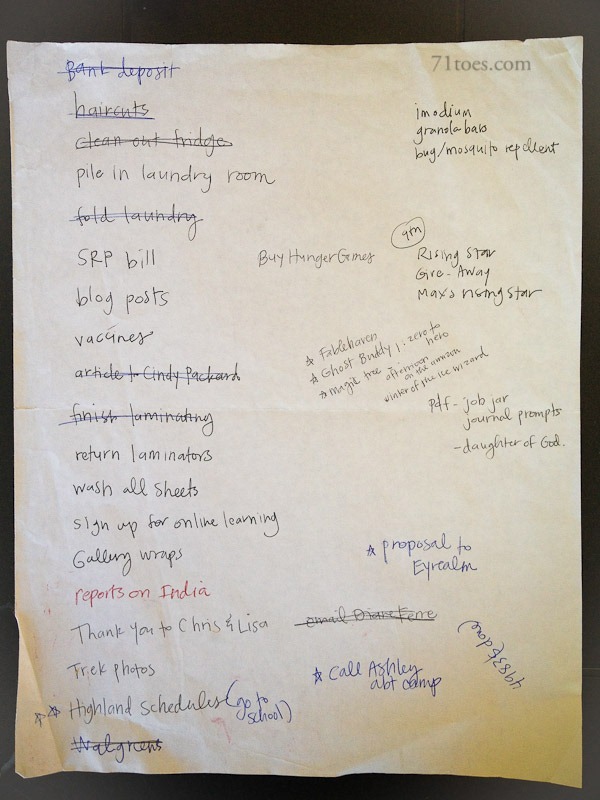 71toes.com
Bank deposit
haircuts
clean out fridge
pile in laundry room
fold laundry
SRP bill
blog posts
vaccines
article to Cindy Packard
finish laminating
return laminators
wash all sheets
sign up for online learning
Gallery wraps
reports on India
Thank you to Chris & Lisa
Trek photos
Highland Schedules (go to
school)
Walgreens
imodium
granola bars
bug/mosquito repellent
Buy Hunger Games
Rising Star
Give-Away
Max's rising star
Fablehaven
Ghost Buddy 1: zero to
hero
magic tree afternoon
on the amazon
winter of the ice wizard
pdf - job jar
journal prompts
- daughter of God.
proposal to
Eyrealm
email Diane
Call Ashley
abt camp